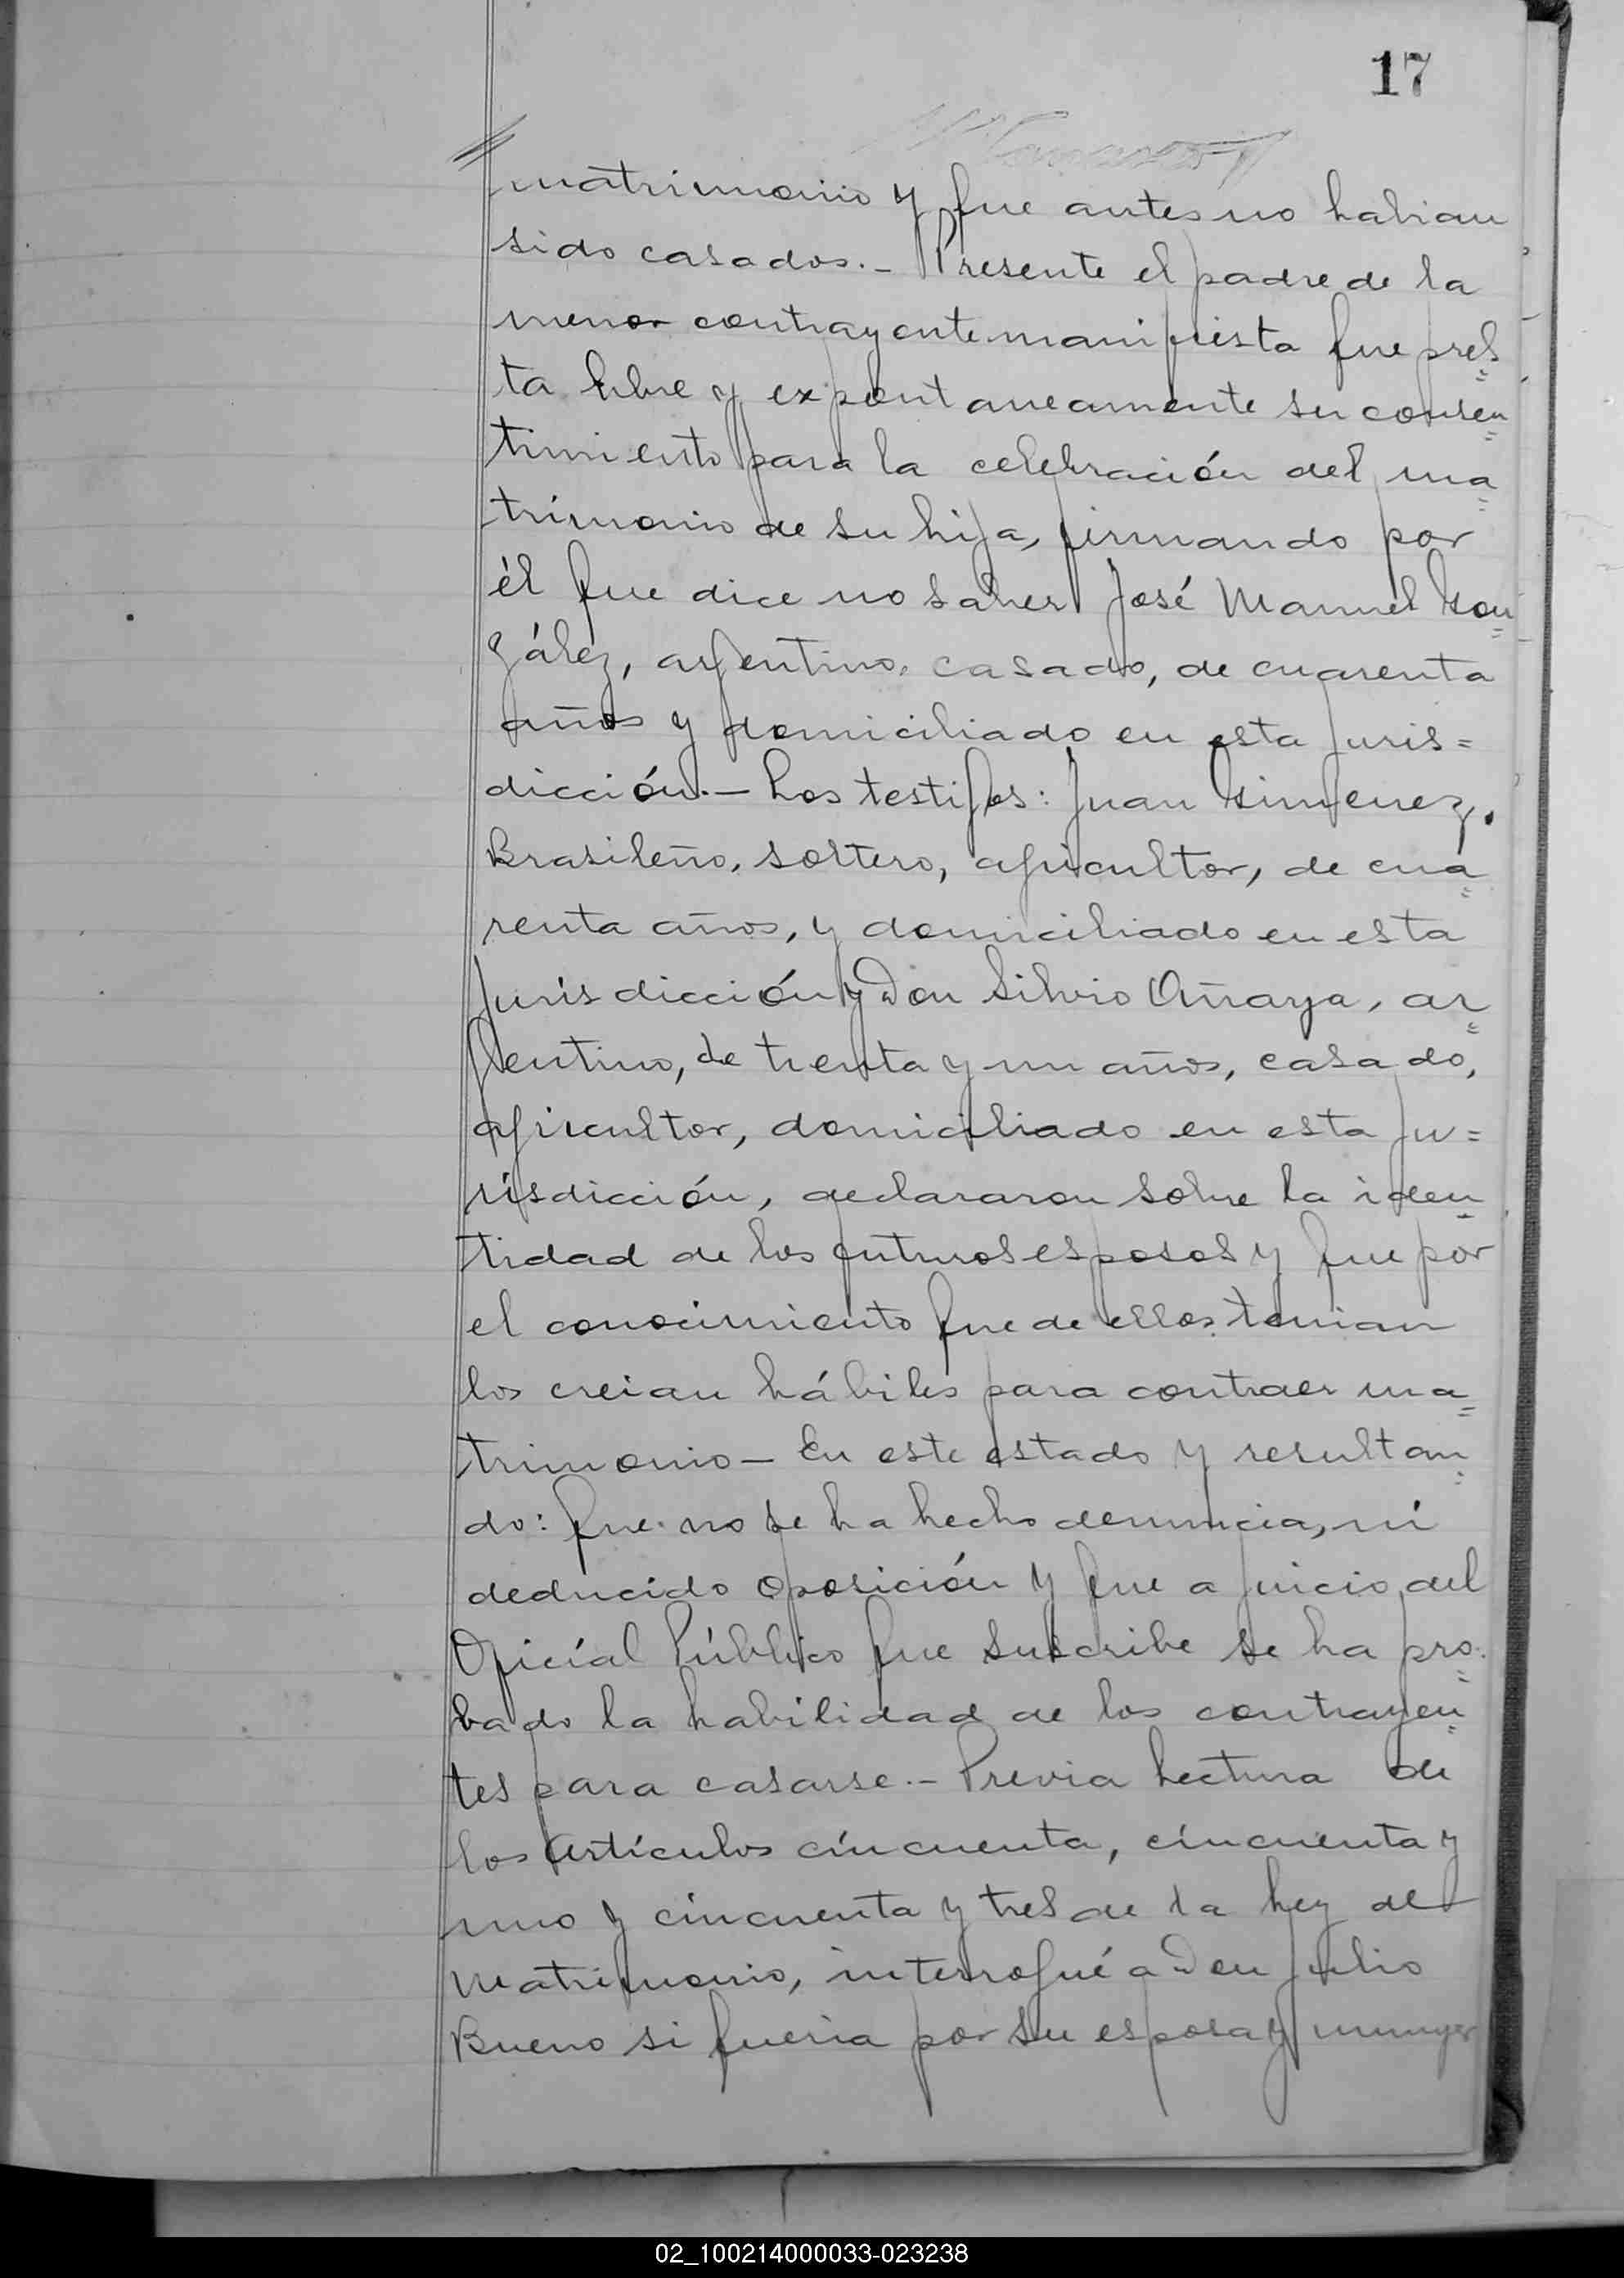 17
matrimonio y que antes no habian
sido casados.- Presente el padre de la
menor contrayente manifiesta que pres=
ta libre y expontaneamente su consen=
timiento para la celebración del ma=
trimonio de su hija, firmando por
él que dice no saber José Manuel Gon=
zález, argentino, casado, de cuarenta
años y domiciliado en esta juris=
dicción.- Los testigos: Juan Gimenez,
Brasileño, soltero, agricultor, de cua=
renta años, y domiciliado en esta
jurisdicción y Don Silvio Añaya, ar=
gentino, de treinta y un años, casado,
agricultor, domiciliado en esta ju=
risdicción, declararon sobre la iden=
tidad de los futuros esposos y que por
el conocimiento que de ellos tenian
los creian hábiles para contraer ma=
trimonio- En este estado y resultan=
do: que no se ha hecho denuncia, ni
deducido oposición y que a juicio del
Oficial Público que suscribe se ha pro=
bado la habilidad de los contrayen=
tes para casarse.- Previa lectura de
los Artículos cincuenta, cincuenta y
uno y cincuenta y tres de la Ley de
Matrimonio, interrogué a Don Julio
Bueno si queria por su esposa y muger
02_100214000033-023238